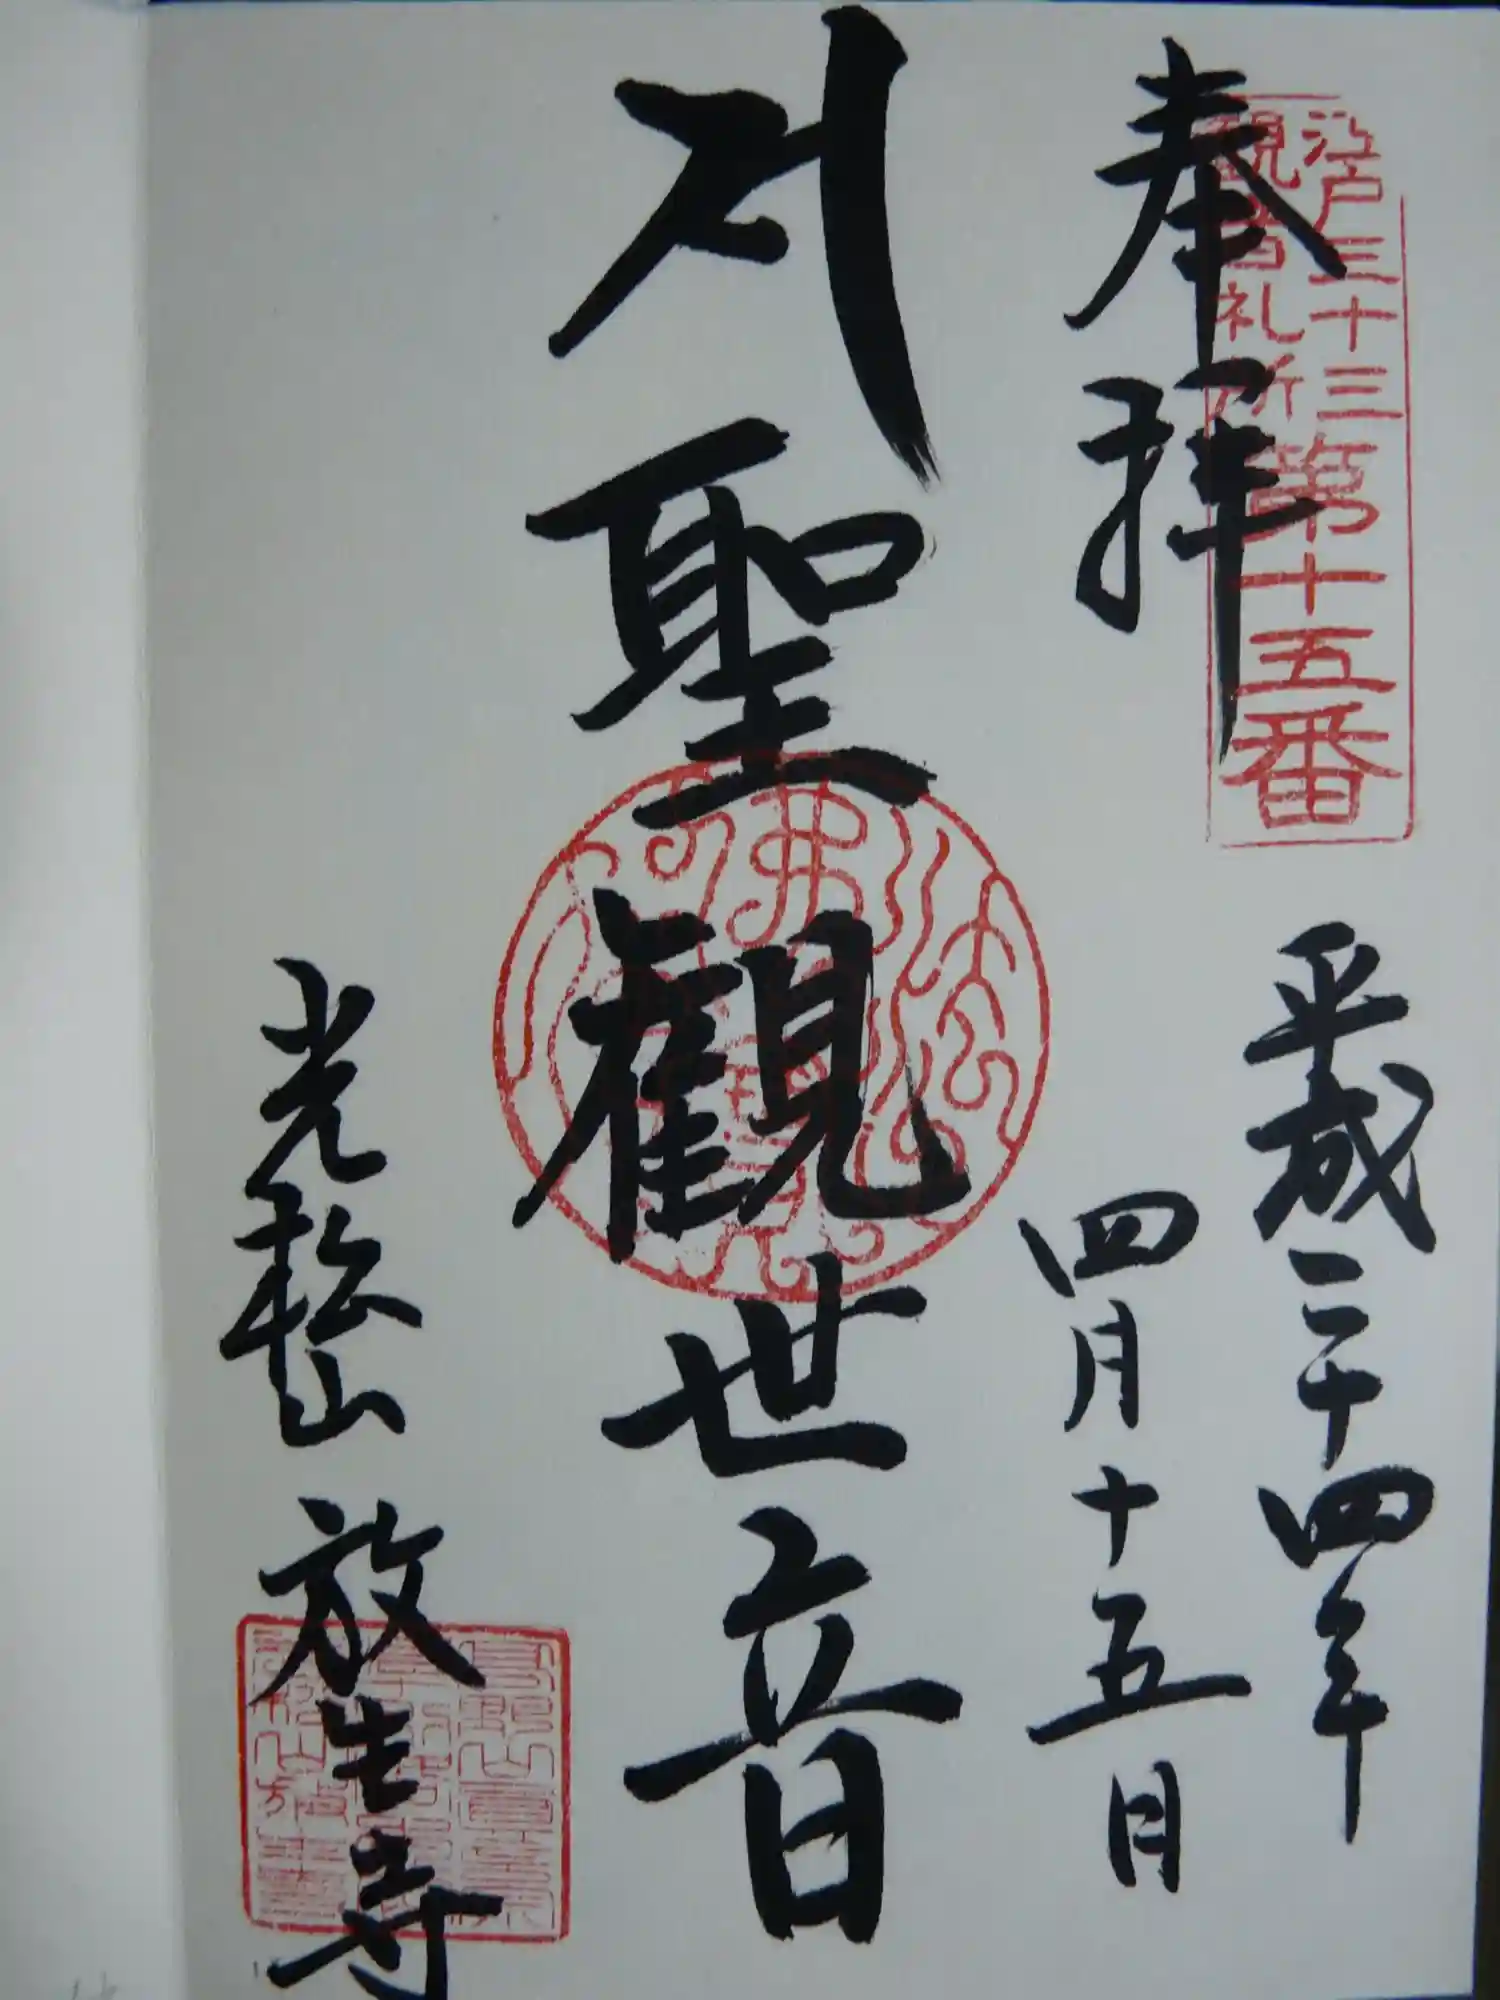 奉拝
江戸三十三
観音札所第十五番
平成二十四年
四月十五日
聖觀世音
光松山放生寺